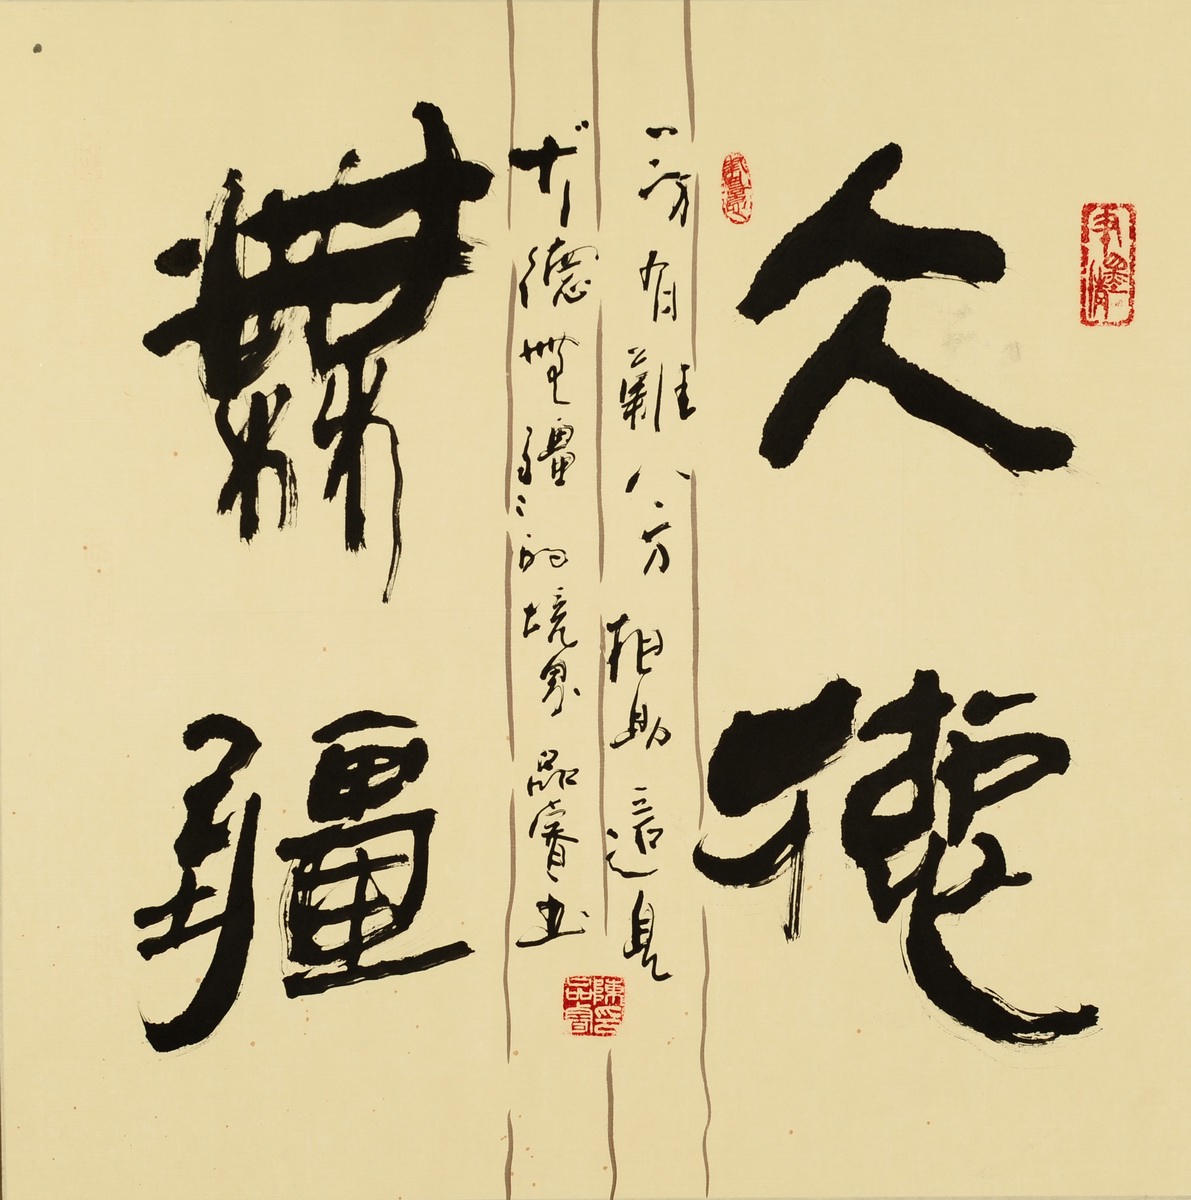 大德
無疆
一方有難八方相助這是
大德無疆的境界品睿書
陳印品睿